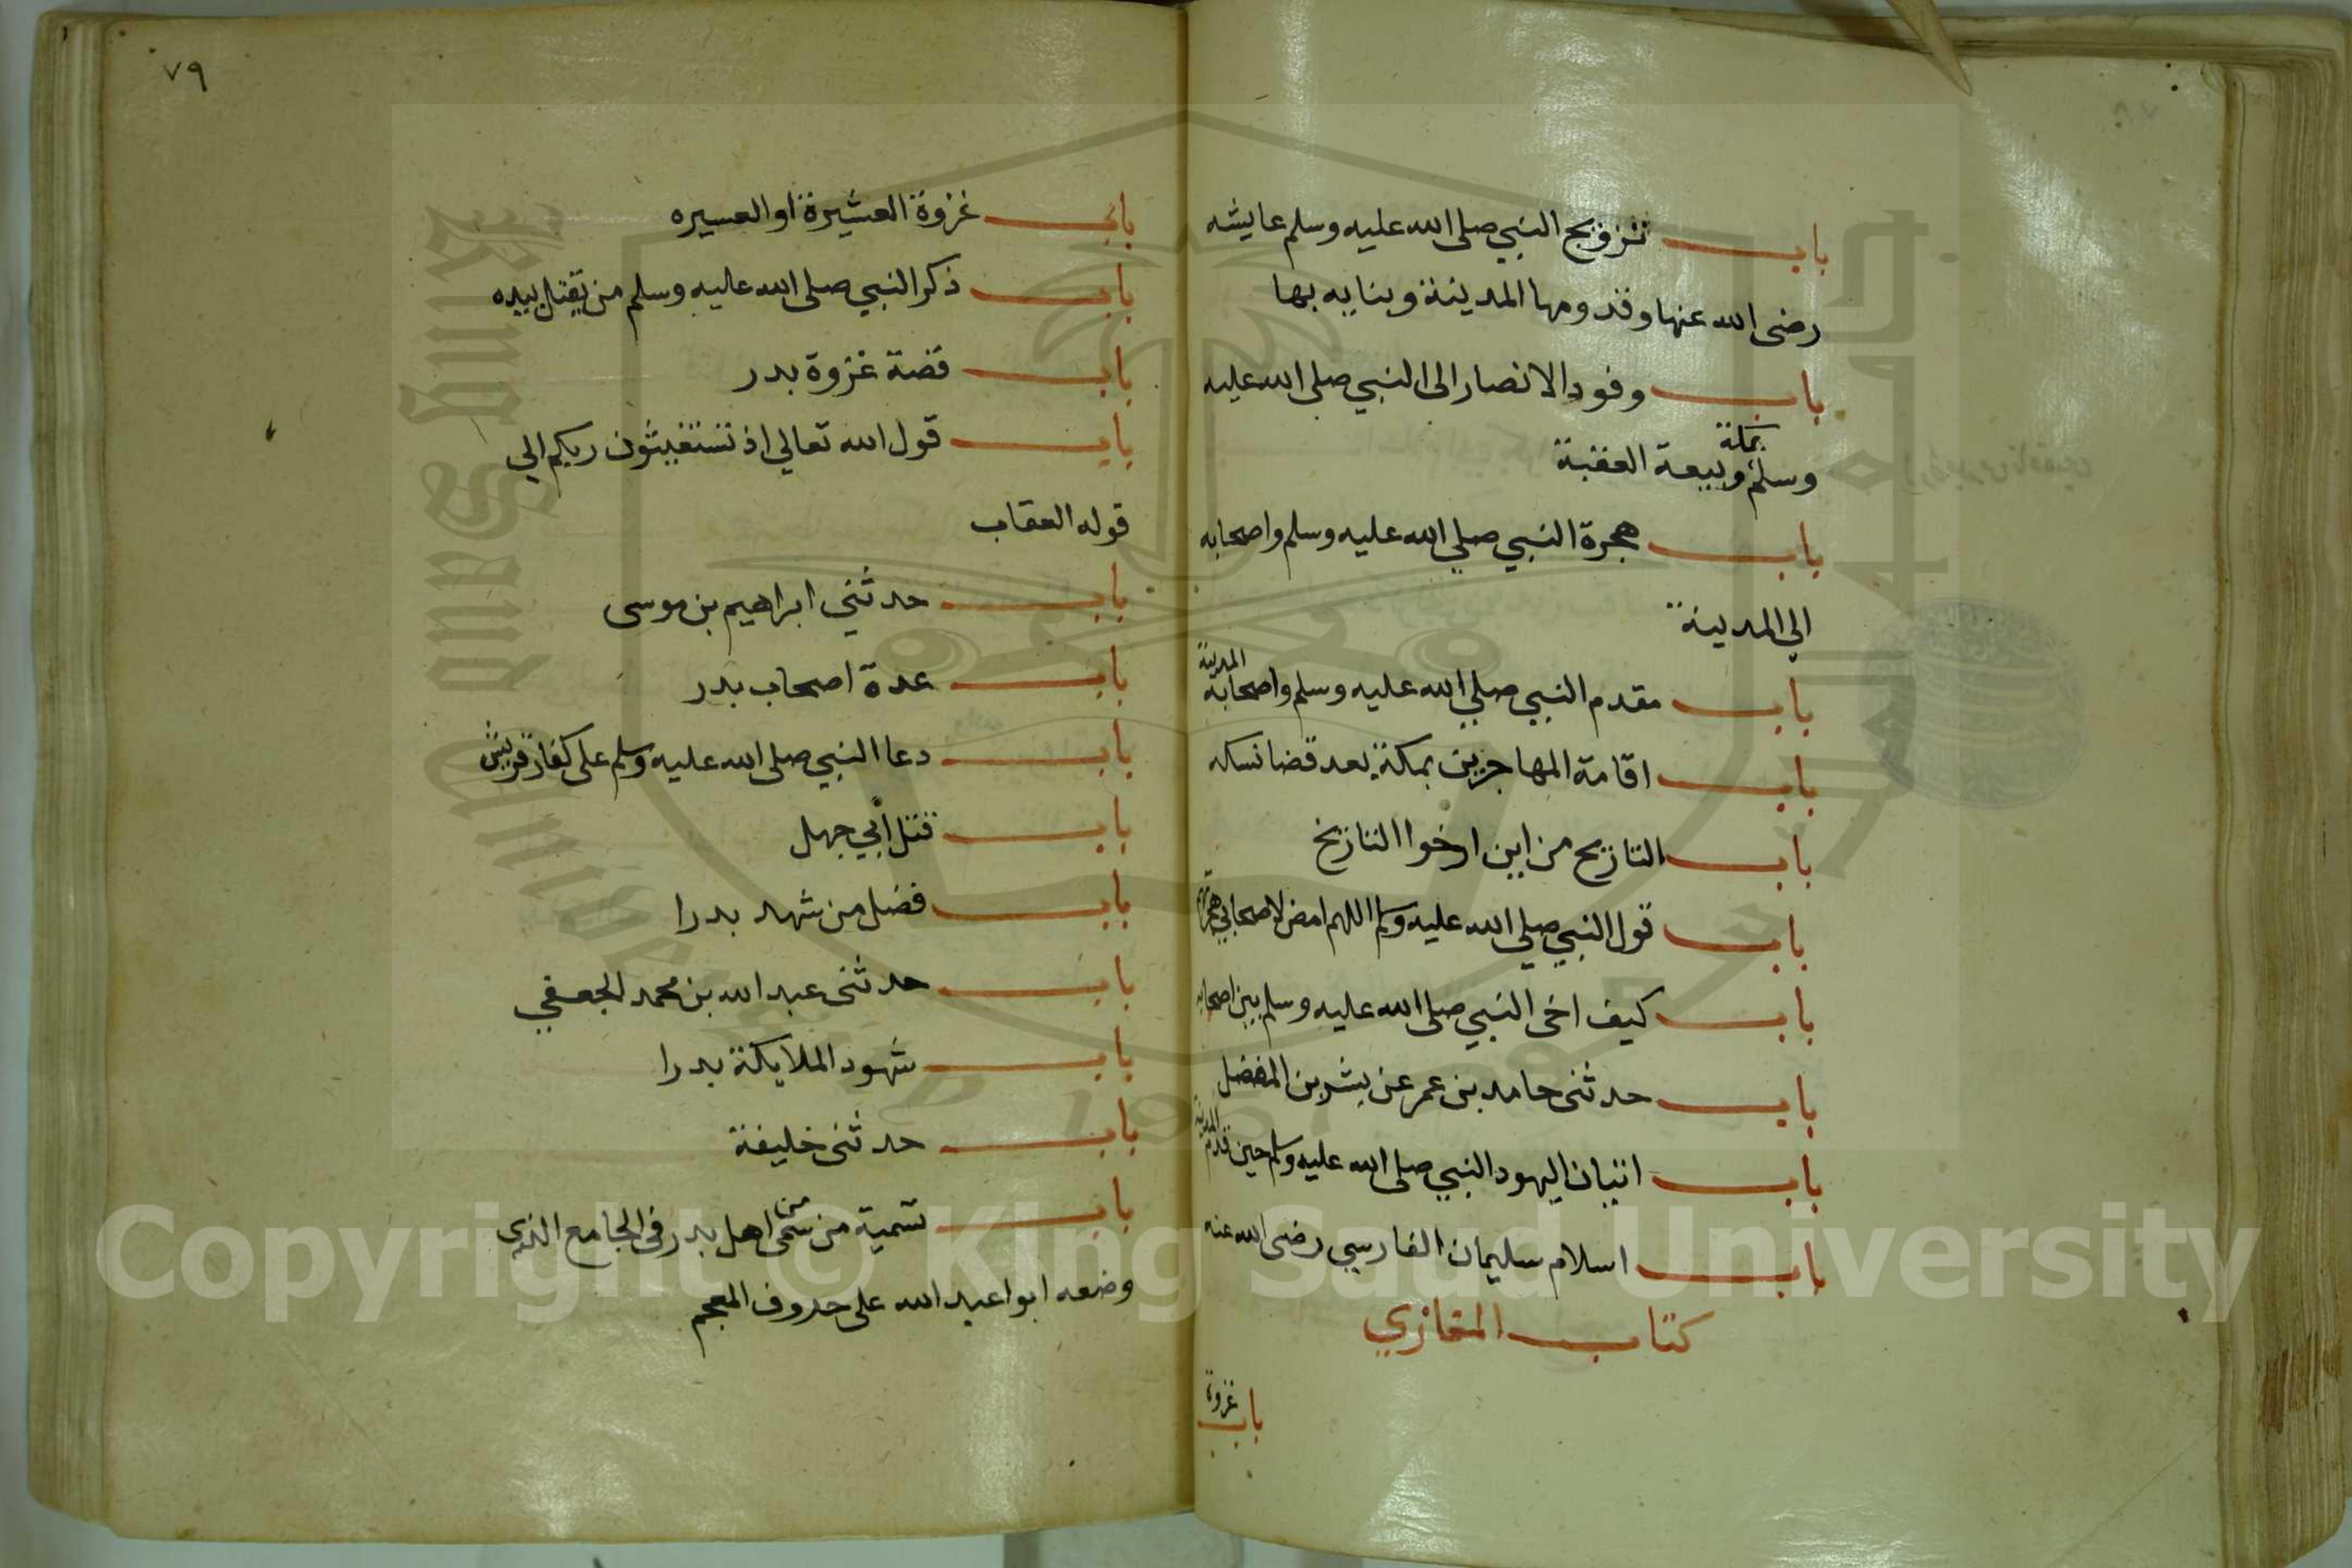 باب تزويج النبي صلى الله عليه وسلم عايشه
رضى الله عنها وقدومها المدينة وبنايه بها
باب وفود الانصار الى النبي صلى الله عليه
وسلم بمكة وبيعة العقبة
باب هجرة النبي صلي الله عليه وسلم واصحابه
الي المدينة
باب مقدم النبي صلي الله عليه وسلم واصحابه المدينة
باب اقامة المهاجرين بمكة بعد قضا نسكه
باب التاريخ من اين ارخوا التاريخ
باب قول النبي صلي الله عليه وسلم اللهم امض لاصحابي هجرتهم
باب كيف اخى النبي صلى الله عليه وسلم بين اصحابه
باب حدثنى حامد بن عمر عن بشر بن المفضل
باب اتيان اليهود النبي صلى الله عليه وسلم حين قدم المدينة
باب اسلام سليمان الفارسي رضى الله عنه
كتاب المغازي
باب غزوة
٧٩
باب غزوة العشيرة او العسيره
باب ذكر النبي صلى الله عليه وسلم من يقتل ببدر
باب قصة غزوة بدر
باب قول الله تعالي اذ تستغيثون ربكم الي
قوله العقاب
باب حدثني ابراهيم بن موسى
باب عدة اصحاب بدر
باب دعا النبي صلى الله عليه وسلم على كفار قريش
باب قتل أبي جهل
باب فضل من شهد بدرا
باب حدثنى عبد الله بن محمد الجعفي
باب شهود الملايكة بدرا
باب حدثنى خليفة
باب تسمية من سمى من اهل بدر فى الجامع الذي
وضعه ابوا عبد الله على حروف المعجم
Copyright © King Saud University
King Saud University
1957